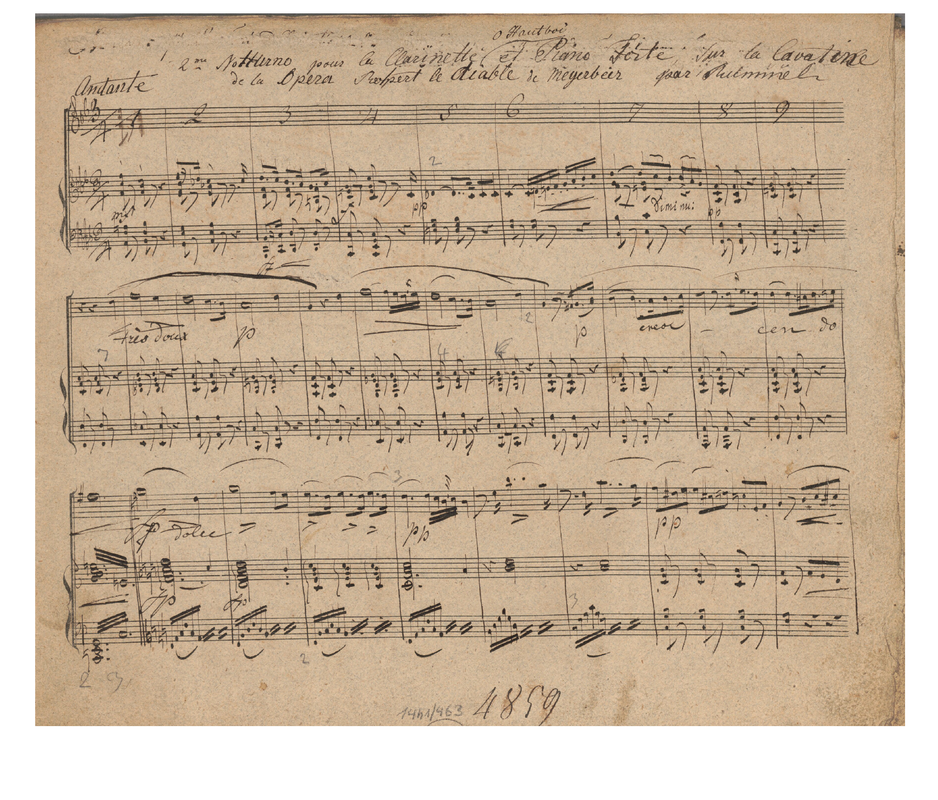 o Hautboi
2me Notturno pour la Clarinette et Piano Forte, Sur la Cavatine
de la Opera Roppert le diable de Meyerbeer par Rummel
Andante
1 2 3 4 5 6 7 8 9
2
pp
diminu: pp
Très doux p p cresc - cen do
7 4
2
3
fp dolce pp pp
fp fp
3
2
2
1441/963 4859